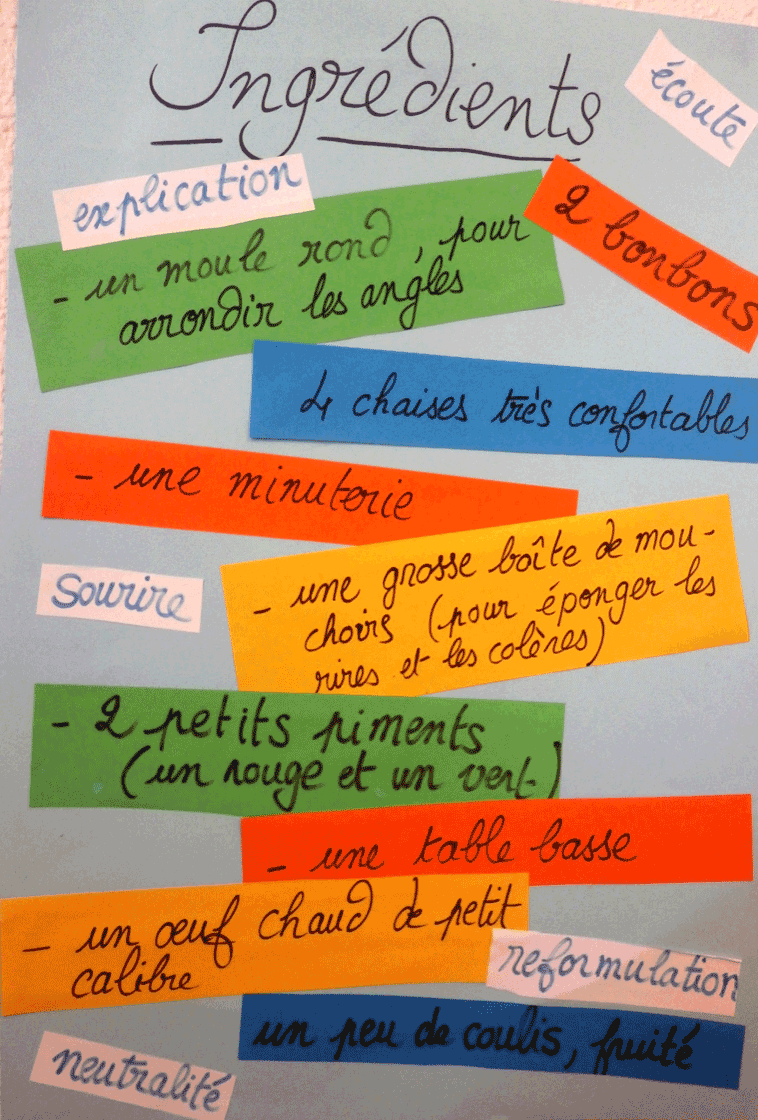 Ingrédients
écoute
explication
2 bonbons
- un moule rond, pour
arrondir les angles
4 chaises très confortables
- une minuterie
- une grosse boîte de mou-
choirs (pour éponger les
rires et les colères)
sourire
- 2 petits piments
(un rouge et un vert)
- une table basse
- un œuf chaud de petit
calibre
reformulation
un peu de coulis, fruité
neutralité